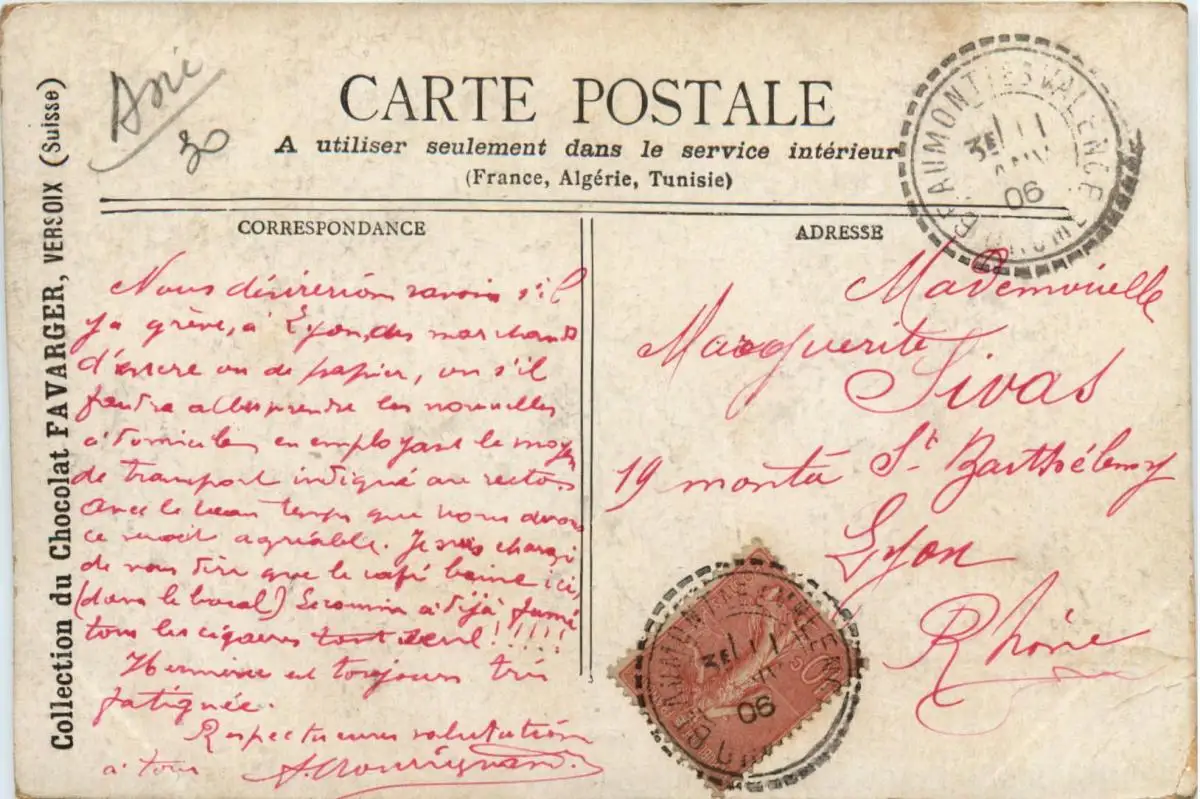 Avi
30
CARTE POSTALE
A utiliser seulement dans le service intérieur
(France, Algérie, Tunisie)
Collection du Chocolat FAVARGER, VERSOIX (Suisse)
CORRESPONDANCE
Nous désirerions savoir s'il
y a grève, à Lyon, des marchands
d'encre ou de papier, ou s'il
faudra aller prendre les nouvelles
à domicile en employant le moyen
de transport indiqué au recto.
Avec le beau temps que nous avons
ce serait agréable. Je suis chargé
de vous dire que le café baisse ici,
(dans le bocal) Le cousin a déjà fumé
tous les cigares tout seul!!!!!
Hermine est toujours très
fatiguée.
Respectueuses salutations
à tous
ADRESSE
Mademoiselle
Marguerite
Sivas
19 montée St Barthélemy
Lyon
Rhône
BEAUMONT LES VALENCE
3E 11
06
DROME
BEAUMONT LES VALENCE
3E 11
06